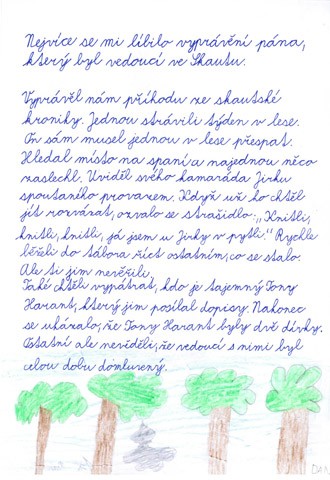 Nejvíce se mi líbilo vyprávění pána,
který byl vedoucí ve Skautu.
Vyprávěl nám příhodu ze skautské
kroniky. Jednou strávili týden v lese.
On sám musel jednou v lese přespat.
Hledal místo na spaní a najednou něco
zaslechl. Uviděl svého kamaráda Jirku
spoutaného provazem. Když už ho chtěl
jít rozvázat, ozvalo se strašidlo: „Knitli,
knitli, knitli, já jsem u Jirky v pytli." Rychle
běželi do tábora říct ostatním, co se stalo.
Ale ti jim nevěřili.
Také chtěli vypátrat, kdo je tajemný Tony
Harant, který jim posílal dopisy. Nakonec
se ukázalo, že Tony Harant byly dvě dívky.
Ostatní ale nevěděli, že vedoucí s nimi byl
celou dobu domluvený.